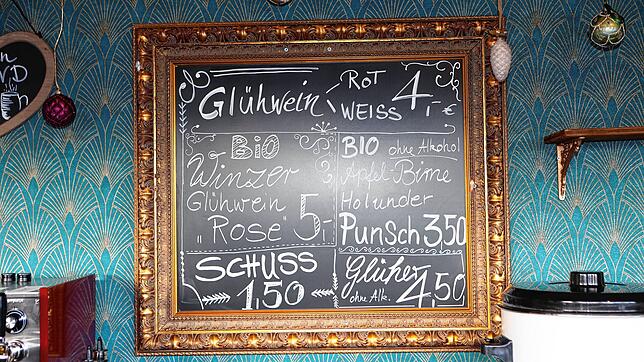 Glühwein ROT
WEISS 4,-€
BIO
Winzer
Glühwein
„Rose" 5,-
BIO ohne Alkohol
Apfel-Birne
Holunder
Punsch 3,50
SCHUSS
1,50
Glüher
ohne Alk. 4,50